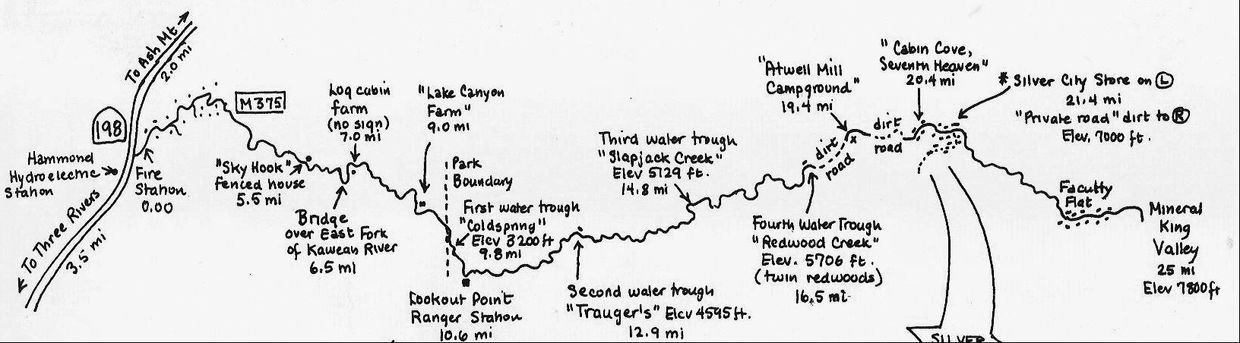 To Ash Mt
2.0 mi
198
M375
Hammond
Hydroelectric
Station
Fire
Station
0.00
To Three Rivers
3.5 mi
"Sky Hook"
fenced house
5.5 mi
Log cabin
farm
(no sign)
7.0 mi
Bridge
over East Fork
of Kaweah River
6.5 mi
"Lake Canyon
Farm"
9.0 mi
Park
Boundary
First water trough
"Coldspring"
Elev 3200 ft
9.8 mi
Lookout Point
Ranger Station
10.6 mi
Second water trough
"Trauger's" Elev 4595 ft.
12.9 mi
Third water trough
"Slapjack Creek"
Elev 5129 ft.
14.8 mi
Fourth Water Trough
"Redwood Creek"
Elev. 5706 ft.
(twin redwoods)
16.5 mi
dirt
road
"Atwell Mill
Campground"
19.4 mi
dirt
road
"Cabin Cove,
Seventh Heaven"
20.4 mi
* Silver City Store on L
21.4 mi
"Private road" dirt to R
Elev. 7000 ft.
Faculty
Flat
Mineral
King
Valley
25 mi
Elev 7800 ft
SILVER